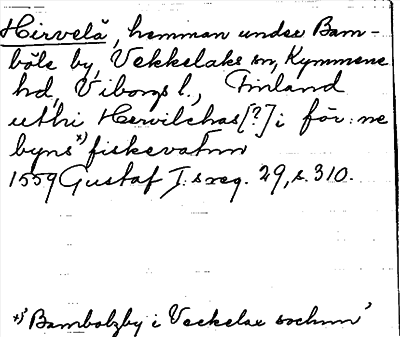 Hirvelä, hemman under Bam-
böle by, Vekkelaks sn, Kymmene
hd, Viborgs l., Finland
uthi Hervilchas [?] i för:ne
byns *) fiskevatnn
1559 Gustaf I:s reg. 29, s. 310.
*) 'Bambolzby i Veckelax sochnn'